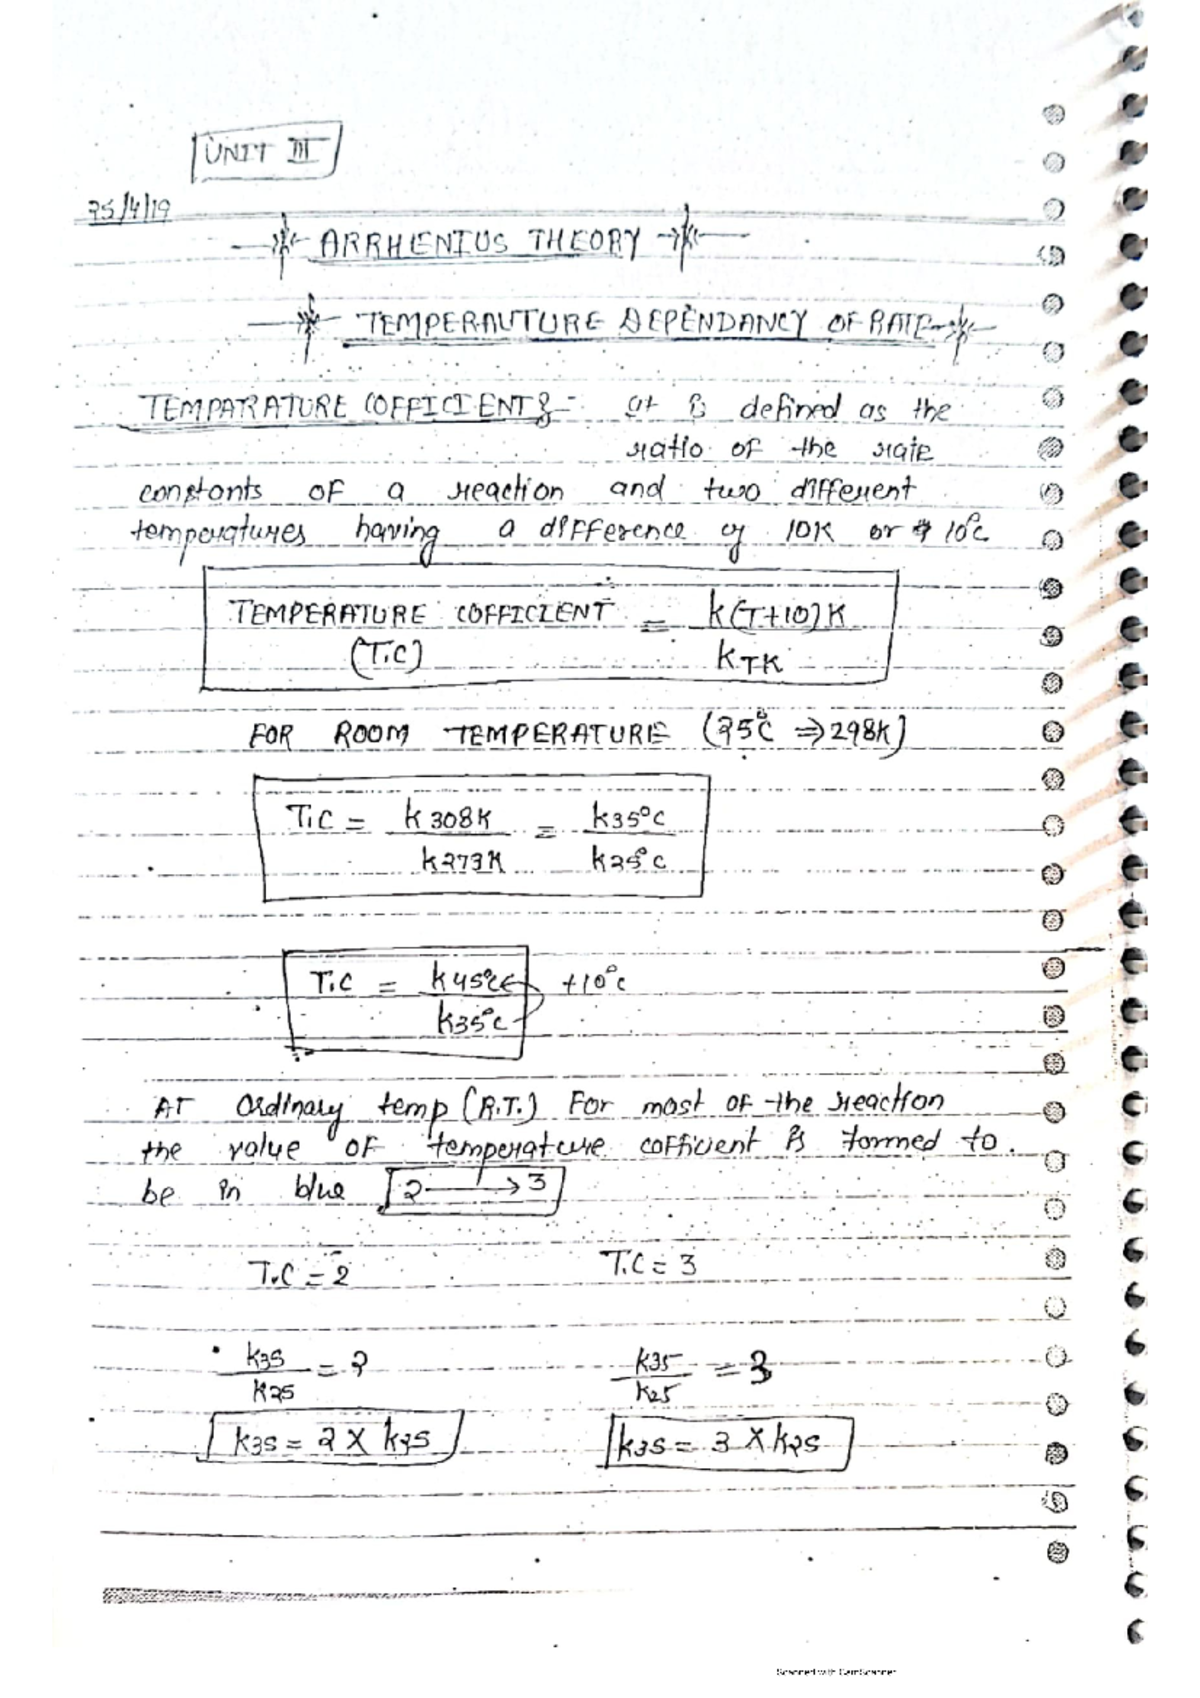 UNIT III
25/4/19
ARRHENIUS THEORY
TEMPERAUTURE DEPENDANCY OF RATE
TEMPARATURE COFFICIENT :- It is defined as the
ratio of the rate
constants of a reaction and two different
temperatures having a difference of 10K or 10°C
TEMPERATURE COFFICIENT (T.C) = k(T+10)K / kTK
FOR ROOM TEMPERATURE (25°C ⇒ 298K)
T.C = k308K / k273K = k35°C / k25°C
T.C = k45°C / k35°C +10°C
AT Ordinary temp (R.T.) For most of the reaction
the value of temperature cofficient is formed to
be in blue 2 → 3
T.C = 2 T.C = 3
k35 / k25 = 2 k35 / k25 = 3
k35 = 2 X k25 k35 = 3 X k25
Scanned with CamScanner